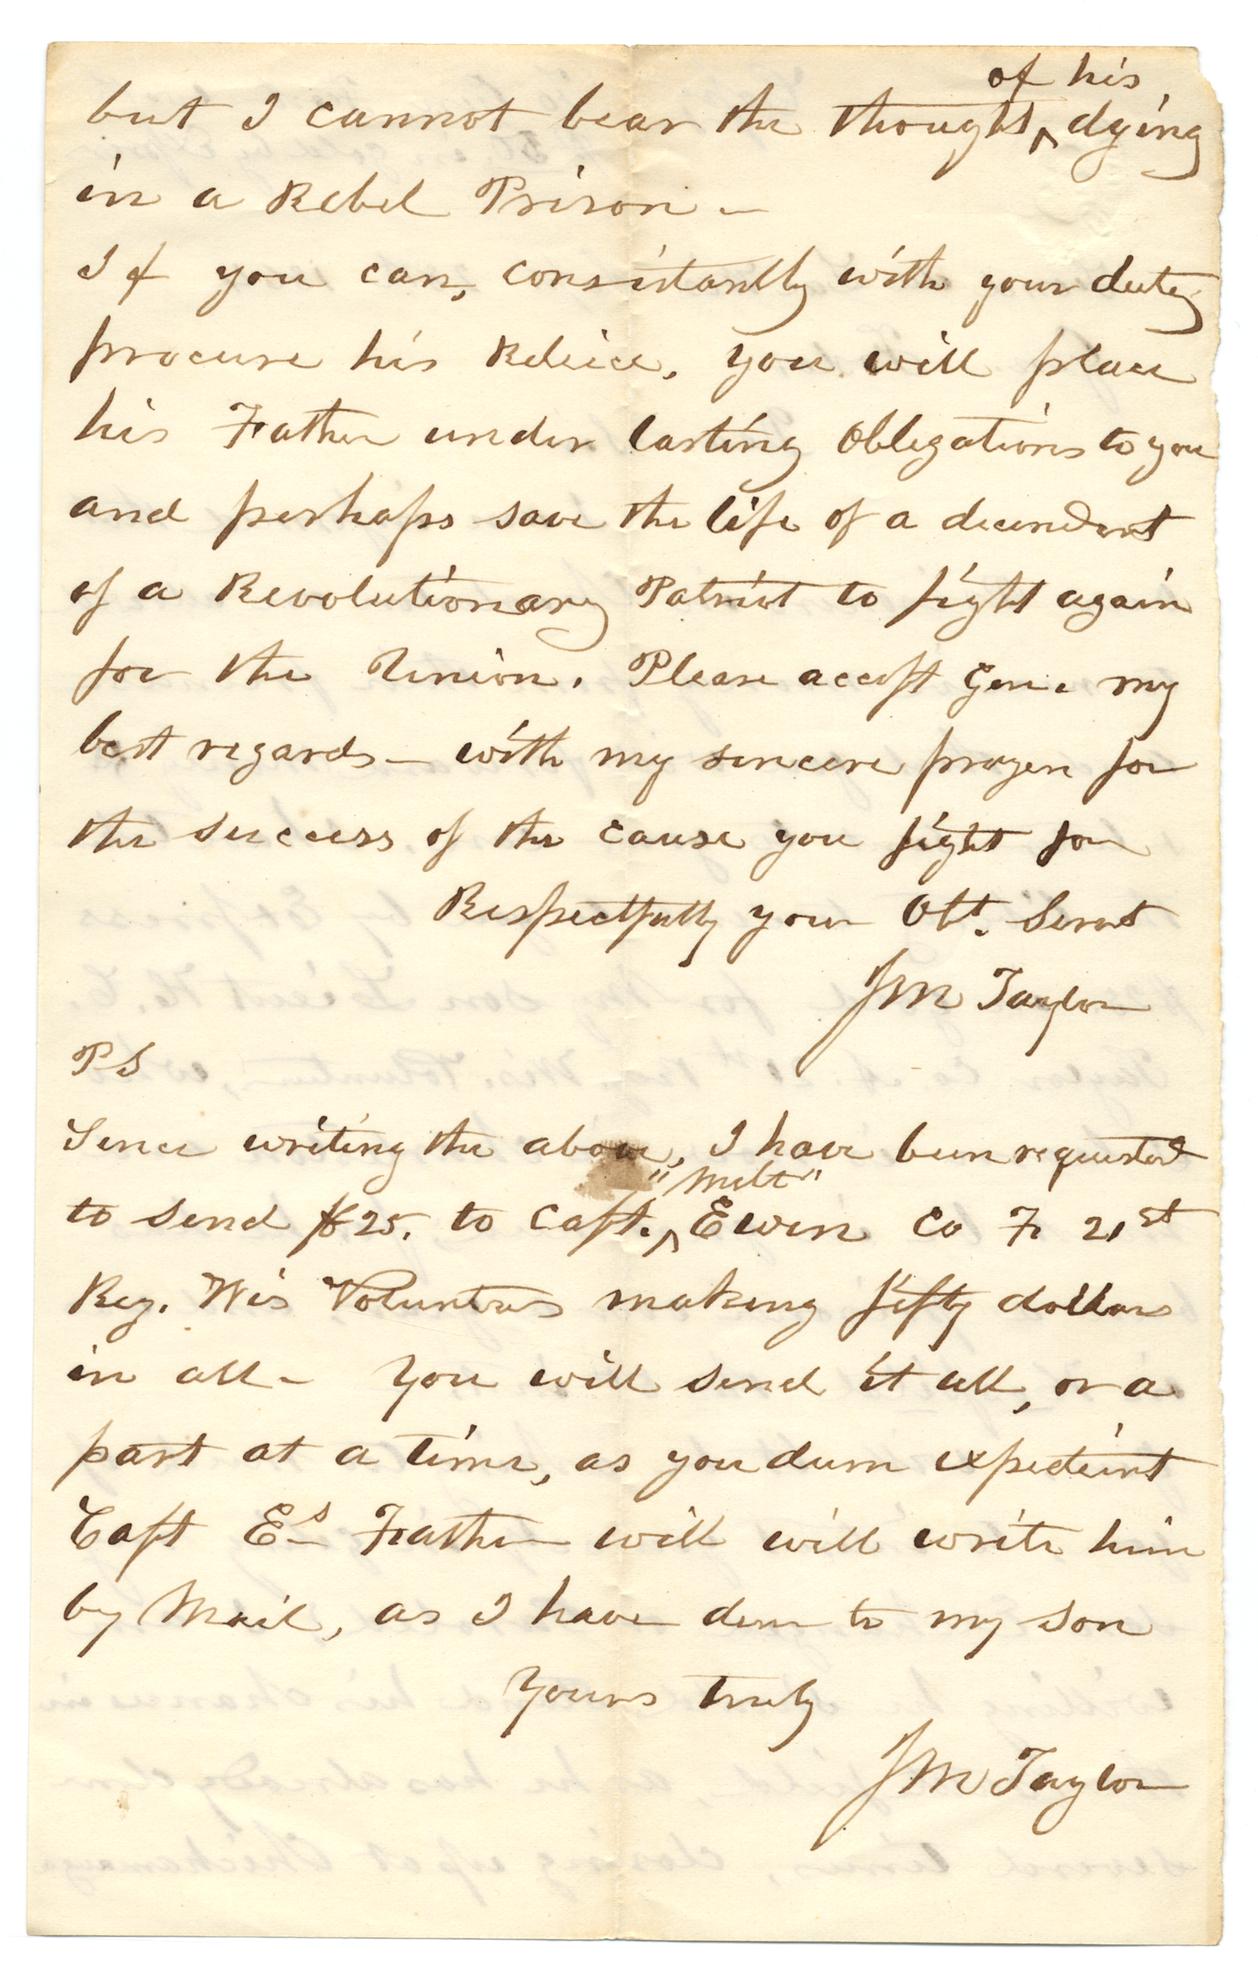 but I cannot bear the thought ^ of his dying
in a Rebel Prison –
If you can, consistantly with your duty
procure his Releice, you will place
his Father under lasting obligations to you
and perhaps save the life of a decendant
of a Revolutionary Patriot to fight again
for the Union. Please accept Gen. my
best regards – with my sincere prayer for
the success of the cause you fight for
Respectfully your Obt. Servt
JM Taylor
PS
Since writing the above, I have been requested
to send $25. to Capt. ^ "Milt" Ewen Co F. 21st
Reg. Wis Volunters making fifty dollars
in all – You will send it all, or a
part at a time, as you deem expedient
Capt Es Father will will write him
by Mail, as I have done to my son
Yours truly
JM Taylor